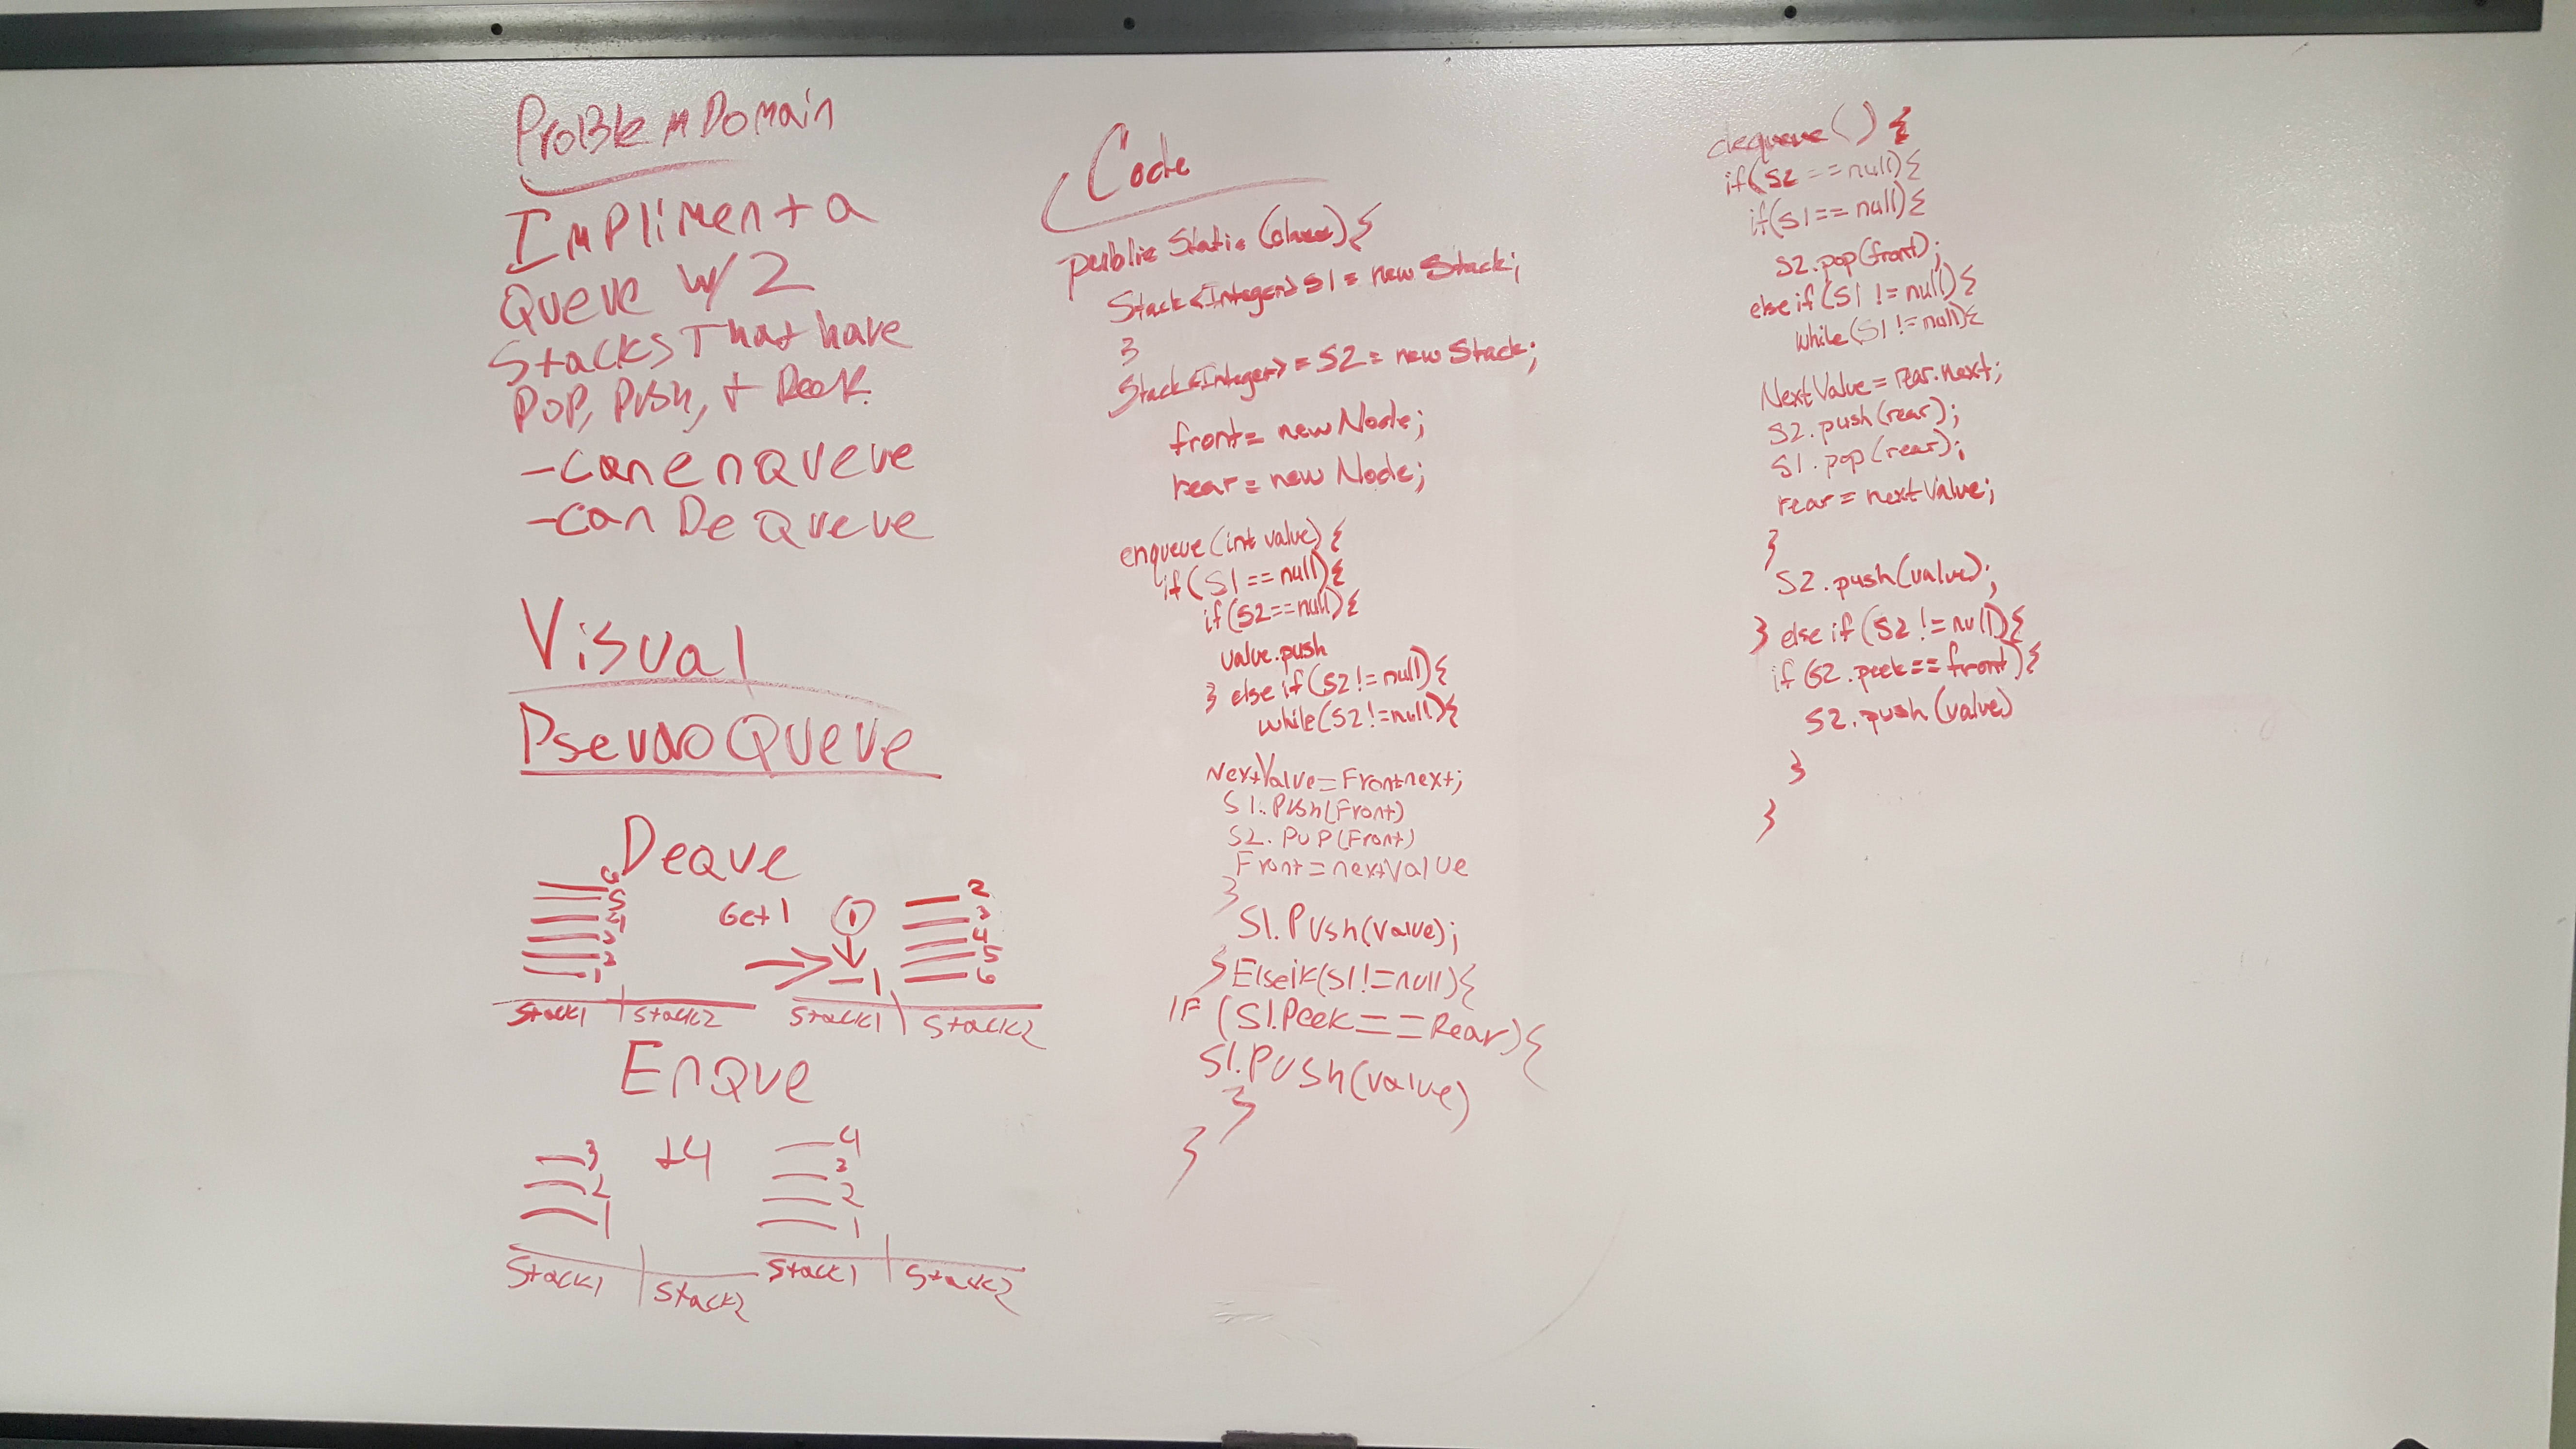 Problem Domain
Impliment a
Queue w/ 2
Stacks That have
Pop, Push, + Peek.
- can enqueue
- can DeQueue
Visual
PseudoQueue
Deque
6
5
4
3
2
1
Get 1
1
1
2
3
4
5
6
Stack1 Stack2 Stack1 Stack2
Enque
3
2
1
+4
4
3
2
1
Stack1 Stack2 Stack1 Stack2
Code
public Static {
Stack<Integer> S1 = new Stack;
}
Stack<Integer> = S2 = new Stack;
front = new Node;
rear = new Node;
enqueue (int value) {
if (S1 == null) {
if (S2 == null) {
value.push
} else if (S2 != null) {
while (S2 != null) {
NextValue = Front.next;
S1.Push(Front)
S2.Pop(Front)
Front = nextValue
}
S1.Push(value);
} Elseif (S1 != null) {
IF (S1.Peek == Rear) {
S1.Push(value)
}
}
dequeue () {
if (S2 == null) {
if (S1 == null) {
S2.pop(front);
else if (S1 != null) {
while (S1 != null) {
NextValue = rear.next;
S2.push(rear);
S1.pop(rear);
rear = nextValue;
}
S2.push(value);
} else if (S2 != null) {
if (S2.peek == front) {
S2.push(value)
}
}